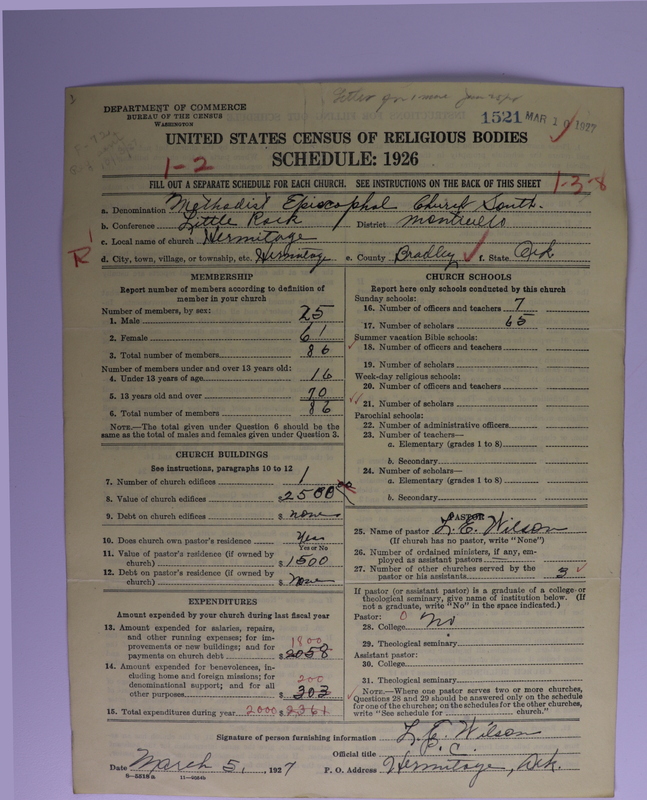 DEPARTMENT OF COMMERCE
BUREAU OF THE CENSUS
WASHINGTON
1521 MAR 10 1927
UNITED STATES CENSUS OF RELIGIOUS BODIES
SCHEDULE: 1926
1-2
FILL OUT A SEPARATE SCHEDULE FOR EACH CHURCH. SEE INSTRUCTIONS ON THE BACK OF THIS SHEET
1-3-8
a. Denomination Methodist Episcophal Church South.
b. Conference Little Rock District Monticello
c. Local name of church Hermitage
R
d. City, town, village, or township, etc. Hermitage e. County Bradley f. State Ark
MEMBERSHIP
Report number of members according to definition of
member in your church
Number of members, by sex:
1. Male 25
2. Female 61
3. Total number of members 86
Number of members under and over 13 years old:
4. Under 13 years of age 16
5. 13 years old and over 70
6. Total number of members 86
NOTE.—The total given under Question 6 should be
same as the total of males and females given under Question 3.
CHURCH BUILDINGS
See instructions, paragraphs 10 to 12
7. Number of church edifices 1
8. Value of church edifices $ 2500 00
9. Debt on church edifices $ none
10. Does church own pastor's residence Yes
Yes or No
11. Value of pastor's residence (if owned by
church) $ 1500
12. Debt on pastor's residence (if owned by
church) $ None
EXPENDITURES
Amount expended by your church during last fiscal year
13. Amount expended for salaries, repairs,
and other running expenses; for im-
provements or new buildings; and for 1800
payments on church debt $ 2058
14. Amount expended for benevolences, in-
cluding home and foreign missions; for
denominational support; and for all 200
other purposes $ 303
15. Total expenditures during year 2000 $ 2361
CHURCH SCHOOLS
Report here only schools conducted by this church
Sunday schools:
16. Number of officers and teachers 7
17. Number of scholars 65
Summer vacation Bible schools:
18. Number of officers and teachers
19. Number of scholars
Week-day religious schools:
20. Number of officers and teachers
21. Number of scholars
Parochial schools:
22. Number of administrative officers
23. Number of teachers—
a. Elementary (grades 1 to 8)
b. Secondary
24. Number of scholars—
a. Elementary (grades 1 to 8)
b. Secondary
PASTOR
25. Name of pastor L. E. Wilson
(If church has no pastor, write "None")
26. Number of ordained ministers, if any, em-
ployed as assistant pastors —
27. Number of other churches served by the
pastor or his assistants 3
If pastor (or assistant pastor) is a graduate of a college or
theological seminary, give name of institution below. (If
not a graduate, write "No" in the space indicated.)
Pastor: 0
28. College No
29. Theological seminary
Assistant pastor:
30. College
31. Theological seminary
NOTE.—Where one pastor serves two or more churches,
Questions 28 and 29 should be answered only on the schedule
for one of the churches; on the schedules for the other churches,
write "See schedule for church."
Signature of person furnishing information L. E. Wilson
Official title P. C.
Date March 5, 1927 P. O. Address Hermitage, Ark.
8-5518a 11-9684b